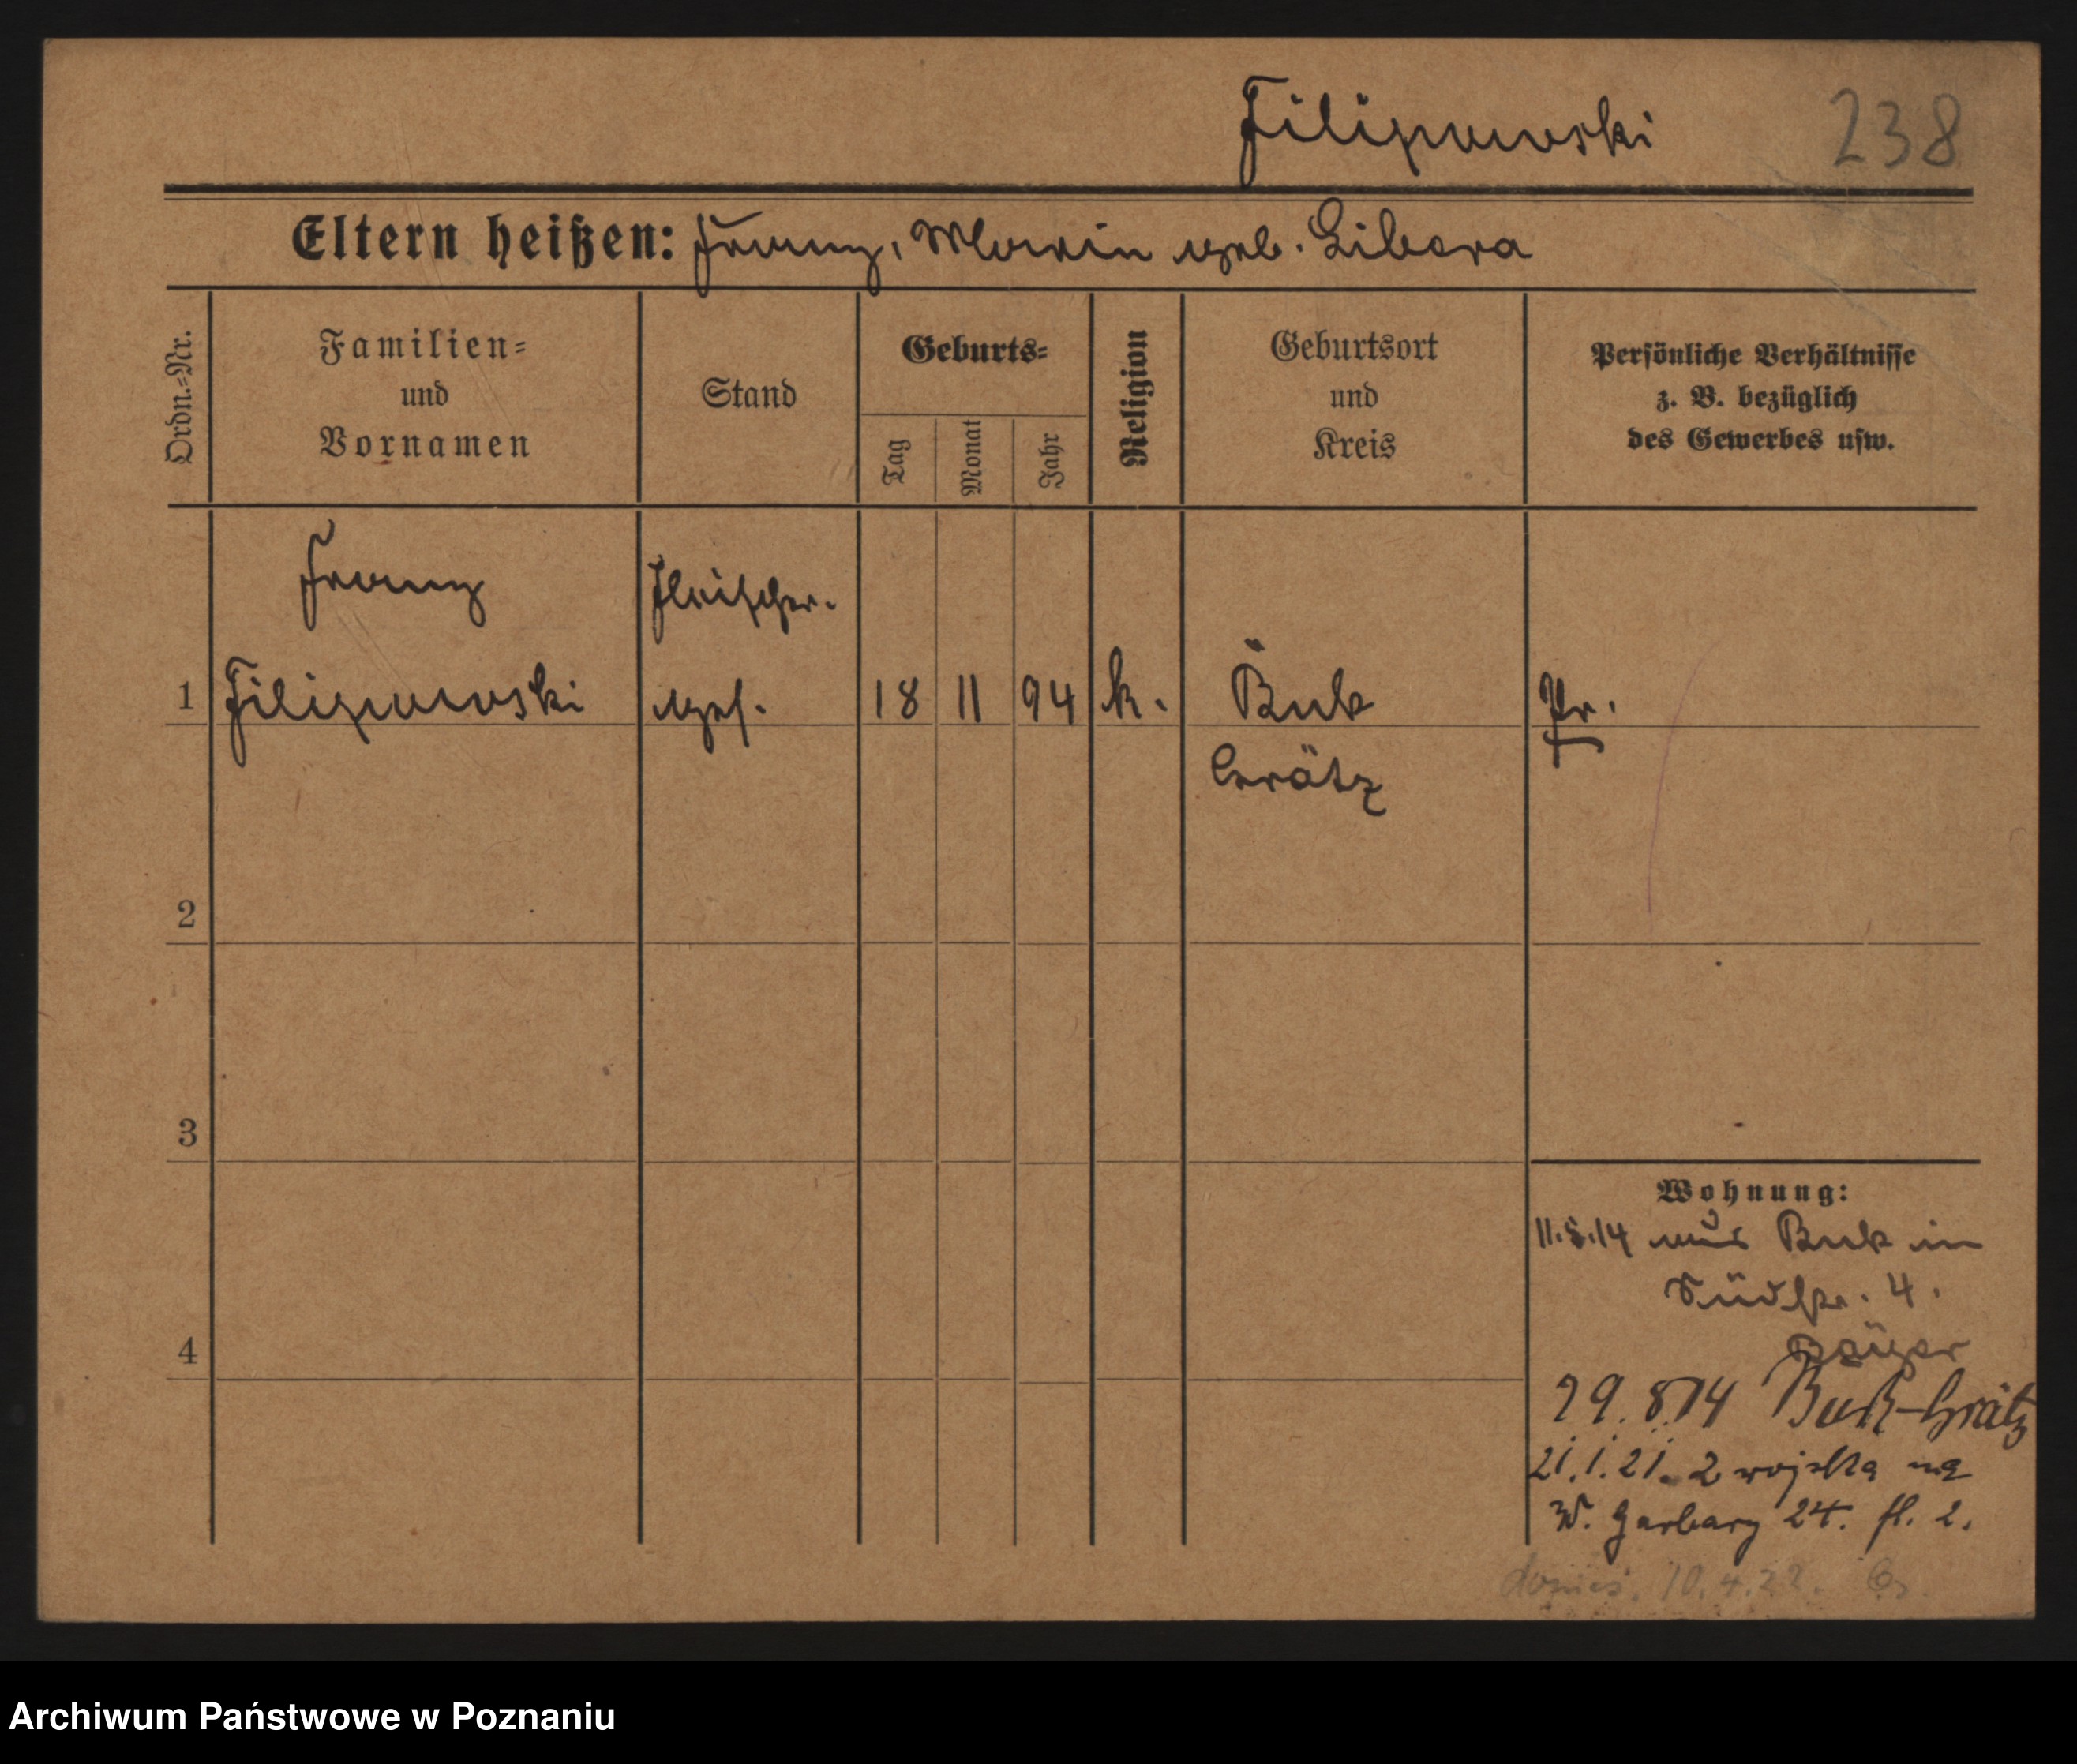 Filipowski 238
Eltern heißen: Franz, Marie geb. Libera
Ordn.-Nr.
Familien-
und
Vornamen
Stand
Geburts-
Tag
Monat
Jahr
Religion
Geburtsort
und
Kreis
Persönliche Verhältnisse
z. B. bezüglich
des Gewerbes usw.
Franz Fleischer-
1 Filipowski ges. 18 11 94 k. Buk Pr.
Grätz
2
3
Wohnung:
11.5.14 aus Buk in
Südstr. 4.
4
29.8.14 Buk-Grätz
21.1.21. z wojska na
W. Garbary 24. fl. 2.
donies. 10.4.22.
Archiwum Państwowe w Poznaniu